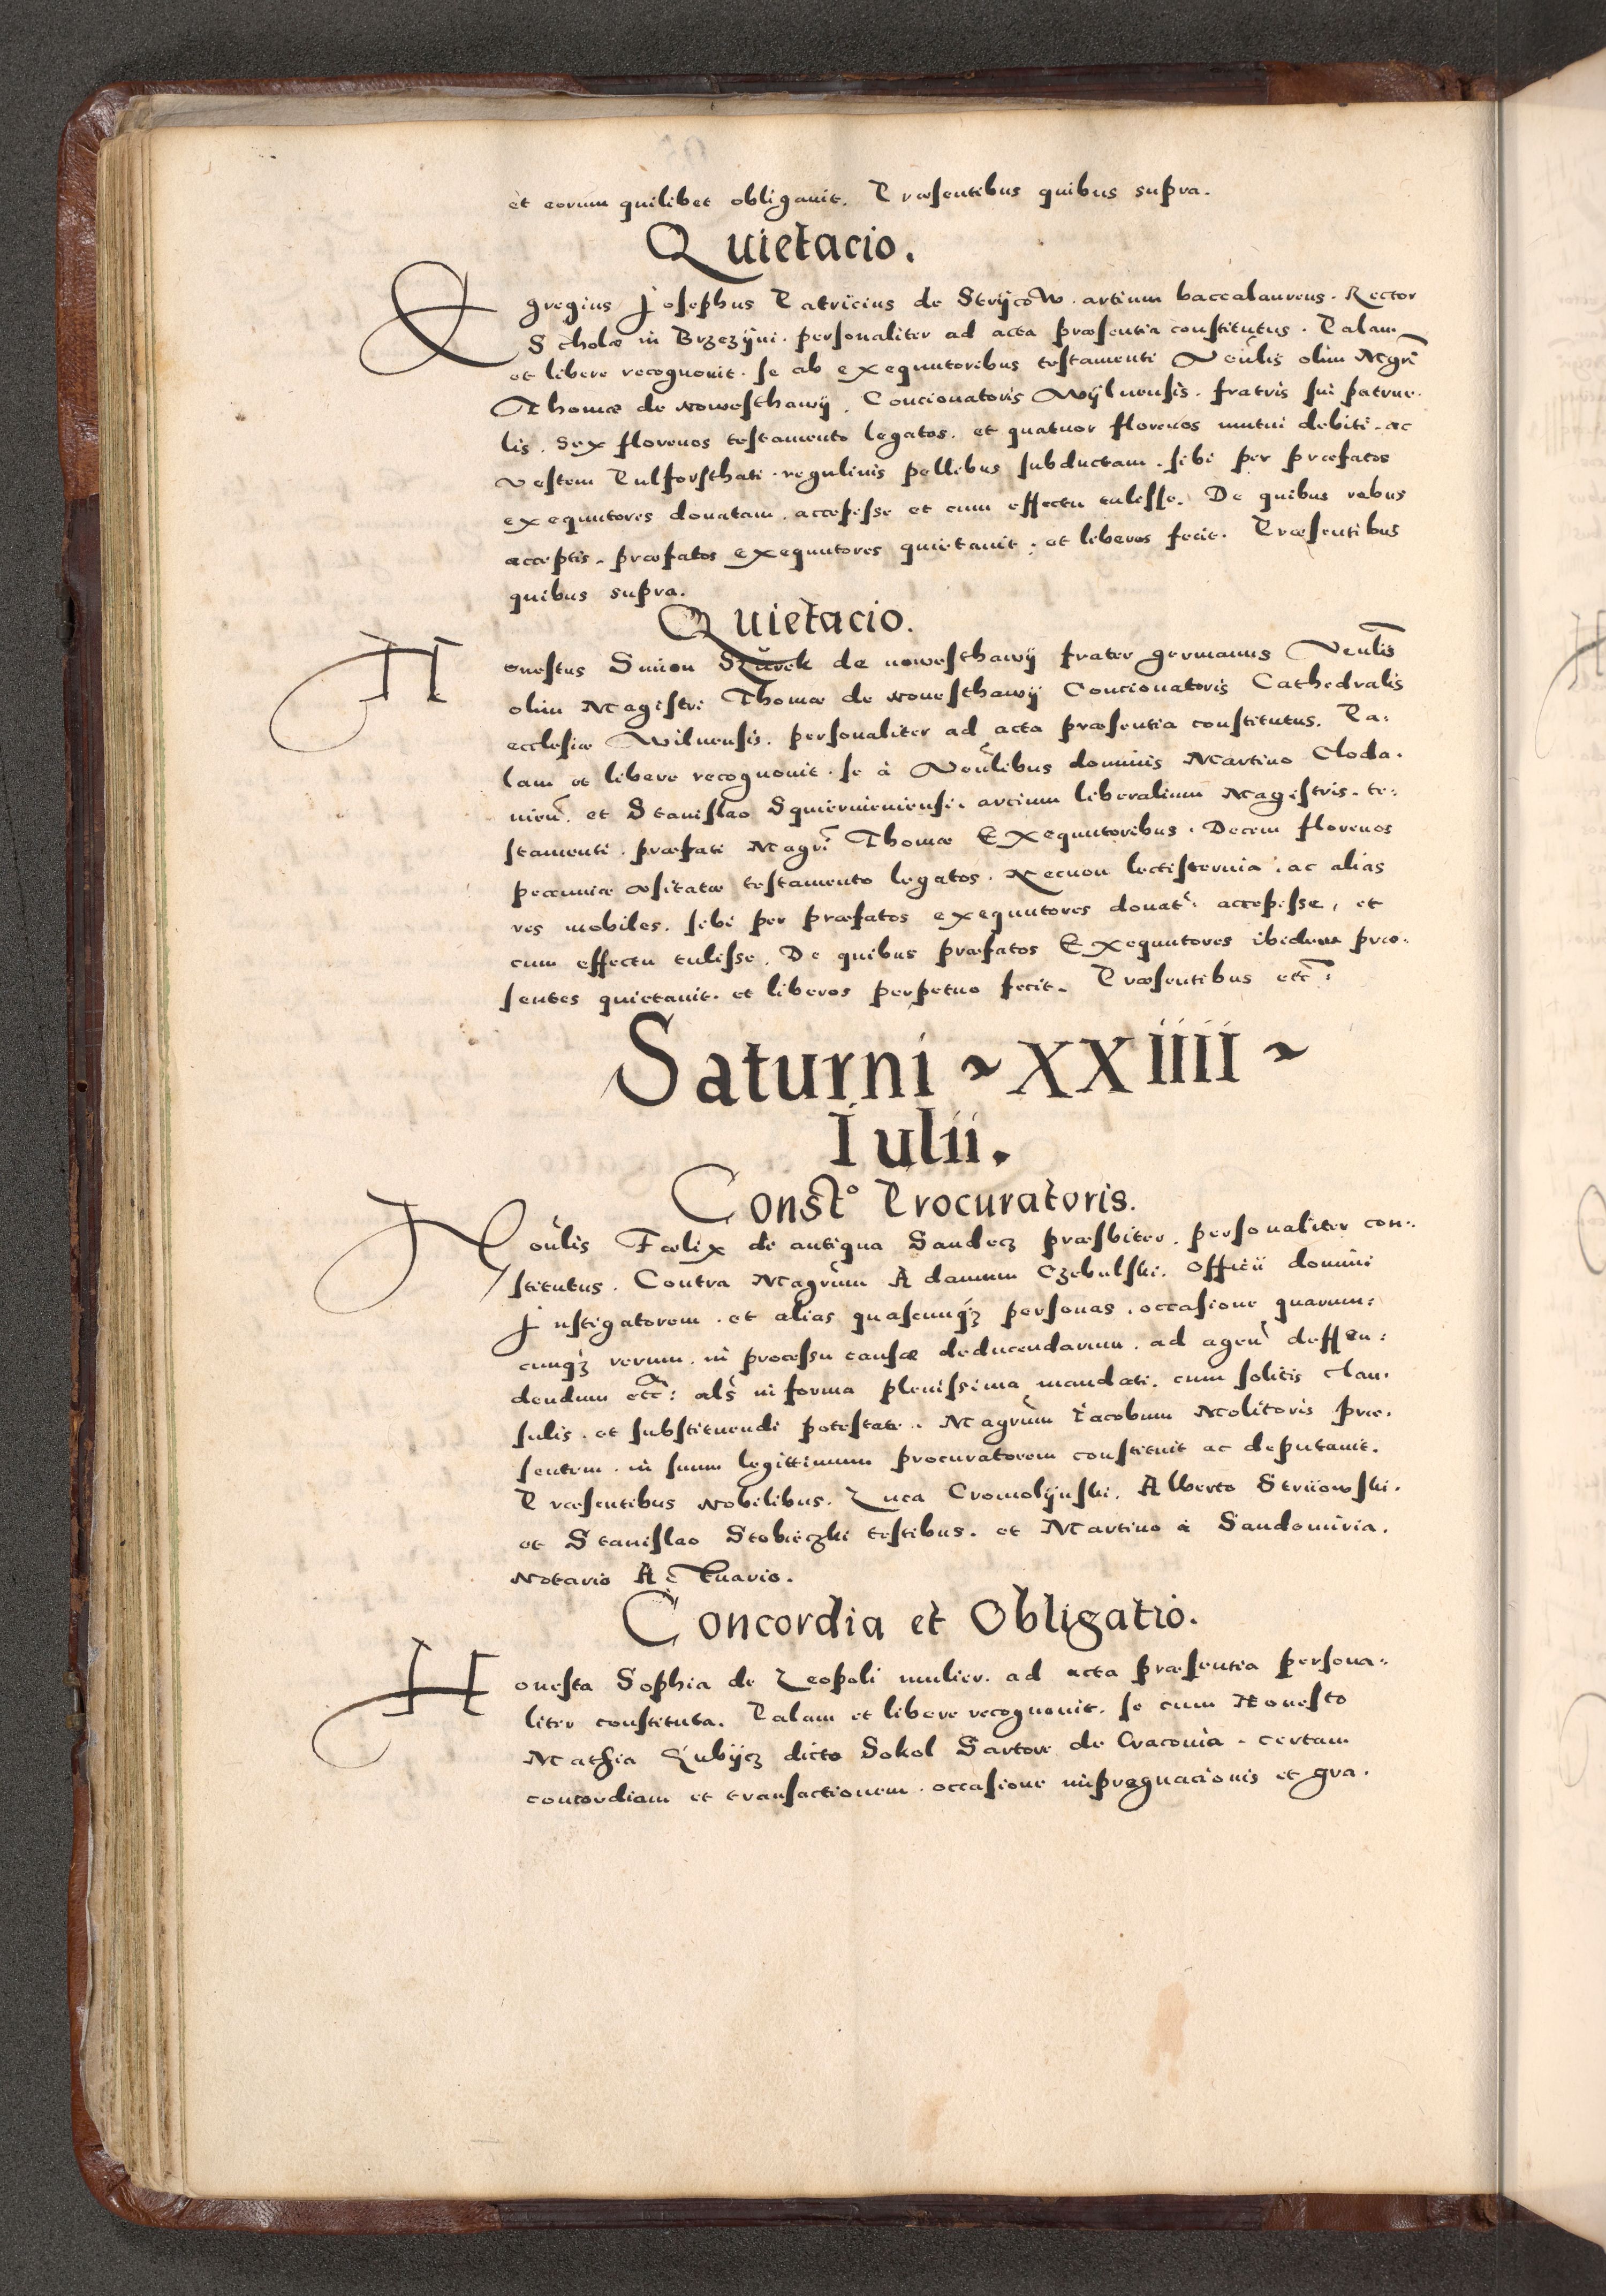 et eorum quilibet obligauit. Præsentibus quibus supra.
Quietacio.
Egregius Josephus Patricius de Strÿcow. artium baccalaureus. Rector
Scholæ in Brzezÿni. personaliter ad acta præsentia constitutus. Palam
et libere recognouit. se ab exequutoribus testamenti Veńlis olim Mgrĩ
Thomæ de Nowesthawÿ. Concionatoris Wÿlnensis. fratris sui patrue-
lis. sex florenos testamento legatos. et quatuor florenos mutui debiti. ac
vestem Pulforsthati. regulinis pellibus subductam. sibi per præfatos
exequutores donatam. accepisse et cum effectu tulisse. De quibus rebus
acceptis. præfatos exequutores quietauit. et liberos fecit. Præsentibus
quibus supra.
Quietacio.
Honestus Simon Szurek de nowesthawÿ frater germanus Veńlis
olim Magistri Thomæ de Nowesthawÿ Concionatoris Cathedralis
ecclesiæ Wilnensis. personaliter ad acta præsentia constitutus. Pa:
lam et libere recognouit. se à Veńlibus dominis Martino Cloda.
nień. et Stanislao Squierninensi. artium liberalium Magistris. te:
stamenti. præfati Magrĩ Thomæ Exequutoribus. Decem florenos
pecuniæ usitatæ testamento legatos. Necnon lectisternia. ac alias
res mobiles. sibi per præfatos exequutores donat: accepisse, et
cum effectu tulisse. De quibus præfatos Exequutores ibidem præ.
sentes quietauit. et liberos perpetuo fecit. Præsentibus etc:
Saturni ~ XXIIII ~
Iulii.
Constº Procuratoris.
Noũlis Fœlix de antiqua Sandecz præsbiter. personaliter con:
stitutus. Contra Magrũm Adamum Czebulski. Officii domini
Instigatorem. et alias quascunqȝ personas. occasione quarum:
cunqȝ rerum. in processu causæ deducendarum. ad ageń deffen:
dendum etc: alš in forma plenissima mandati. cum solitis clau.
sulis. et substituendi potestate. Magrũm Iacobum Molitoris præ.
sentem. in suum legittimum procuratorem constituit ac deputauit.
Præsentibus Nobilibus. Luca Cromolÿnski. Alberto Strиiowski.
et Stanislao Stobieczki testibus. et Martino à Sandomiria.
Notario Actuario.
Concordia et Obligatio.
Honesta Sophia de Leopoli mulier. ad acta præsentia persona-
liter constituta. Palam et libere recognouit. se cum Honesto
Mathia Lubÿcz dicto Sokol Sartore de Craconia. certam
concordiam et transactionem. occasione impregnacionis et gra.